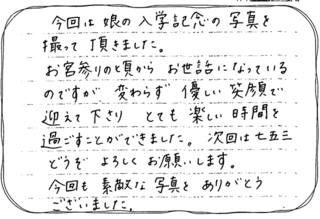 今回は娘の入学記念の写真を
撮って頂きました。
お宮参りの頃から お世話になっている
のですが 変わらず 優しい 笑顔で
迎えて下さり とても 楽しい 時間を
過ごすことができました。 次回は七五三
どうぞ よろしく お願いします。
今回も 素敵な 写真を ありがとう
ございました。